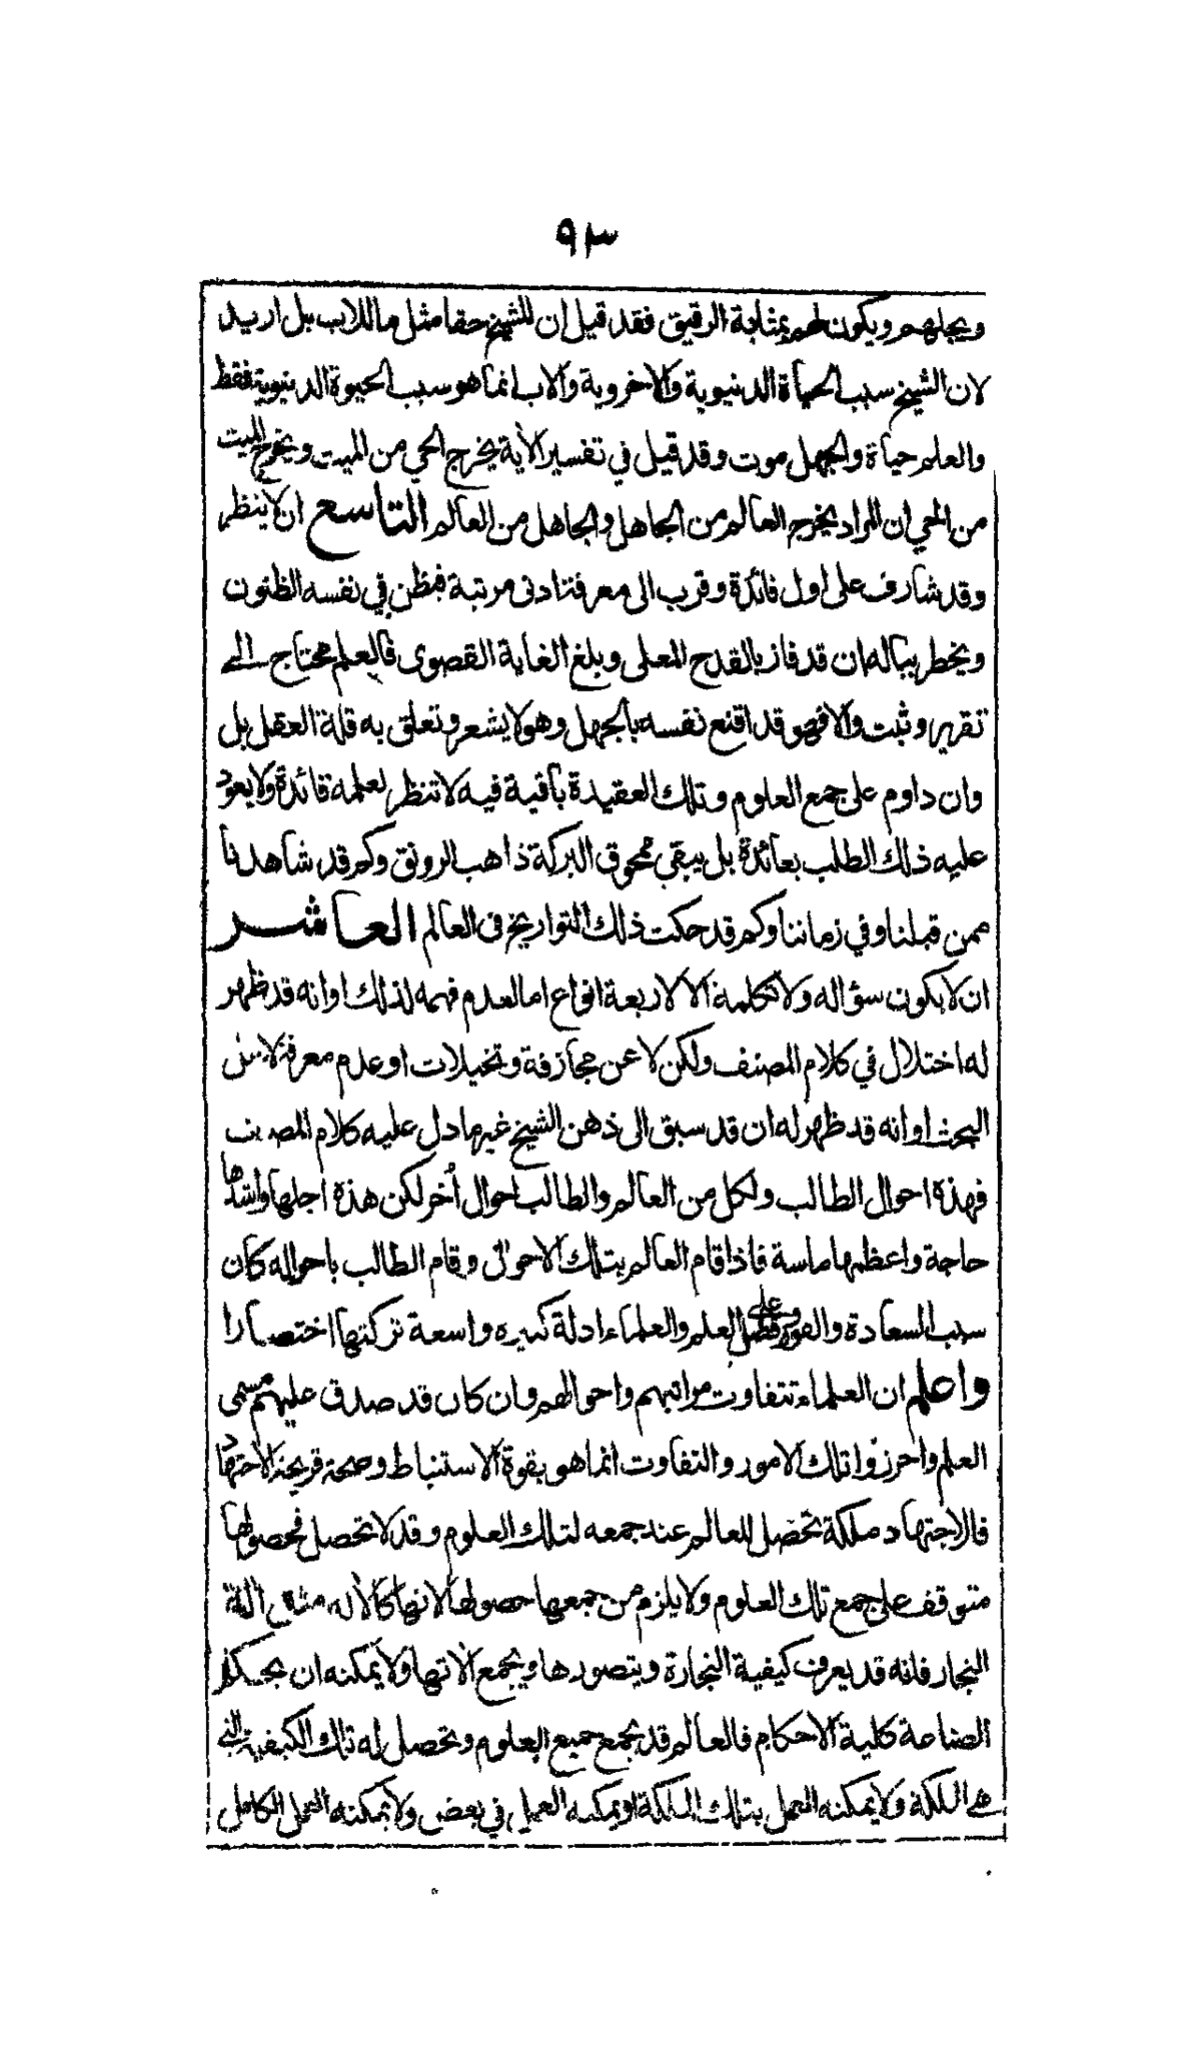 ٩٣
ويجلهم ويكون لهم بمثابة الرقيق فقد قيل ان للشيخ حقا مثل ما للاب بل ازيد
لان الشيخ سبب الحياة الدنيوية والاخروية والاب انما هو سبب الحيوة الدنيوية فقط
والعلم حياة والجهل موت وقد قيل في تفسير الاية يخرج الحي من الميت ويخرج الميت
من الحي ان المراد يخرج العالم من الجاهل والجاهل من العالم التاسع ان لا ينظر
وقد شارف على اول فائدة وقرب الى معرفة ادنى مرتبة فيظن في نفسه الظنون
ويخطر بباله ان قد فاز بالقدح المعلى وبلغ الغاية القصوى فالعلم محتاج الى
تقرير وثبت والا فهو قد اقنع نفسه بالجهل وهو لا يشعر وتعلق به قلة العقل بل
وان داوم على جمع العلوم وتلك العقيدة باقية فيه لا تنظر لعلمه فائدة ولا يعود
عليه ذلك الطلب بعائدة بل يبقى ممحوق البركة ذاهب الرونق وكم قد شاهدنا
ممن قبلنا وفي زماننا وكم قد حكت ذلك التواريخ في العالم العاشر
ان لا يكون سؤاله ولا تكلمه الا لاربعة انواع اما لعدم فهمه لذلك او انه قد ظهر
له اختلال في كلام المصنف ولكن لا عن مجازفة وتخيلات او عدم معرفة لا
البحث او انه قد ظهر له ان قد سبق الى ذهن الشيخ غير ما دل عليه كلام المصنف
فهذه احوال الطالب ولكل من العالم والطالب احوال أخر لكن هذه اجلها واشدها
حاجة واعظمها ماسة فاذا قام العالم بتلك الاحوال وقام الطالب باحواله كان
سبب السعادة والفوز وعلى فضل العلم والعلماء ادلة كثيره واسعة تركتها اختصارا
واعلم ان العلماء تتفاوت مراتبهم واحوالهم وان كان قد صدق عليهم مسمى
العلم واحرزوا تلك الامور والتفاوت انما هو بقوة الاستنباط وصحة قريحة الاجتهاد
فالاجتهاد ملكة تحصل للعالم عند جمعه لتلك العلوم وقد لا تحصل فحصولها
متوقف على جمع تلك العلوم ولا يلزم من جمعها حصولها لانها كالاله مثل الة
النجار فانه قد يعرف كيفية النجارة ويتصورها ويجمع الاتها ولا يمكنه ان يحكم
الصناعة كلية الاحكام فالعالم قد يجمع جميع العلوم وتحصل له تلك الكيفية التي
هي الملكة ولا يمكنه العمل بتلك الملكة او يمكنه العمل في بعض ولا يمكنه العمل الكامل